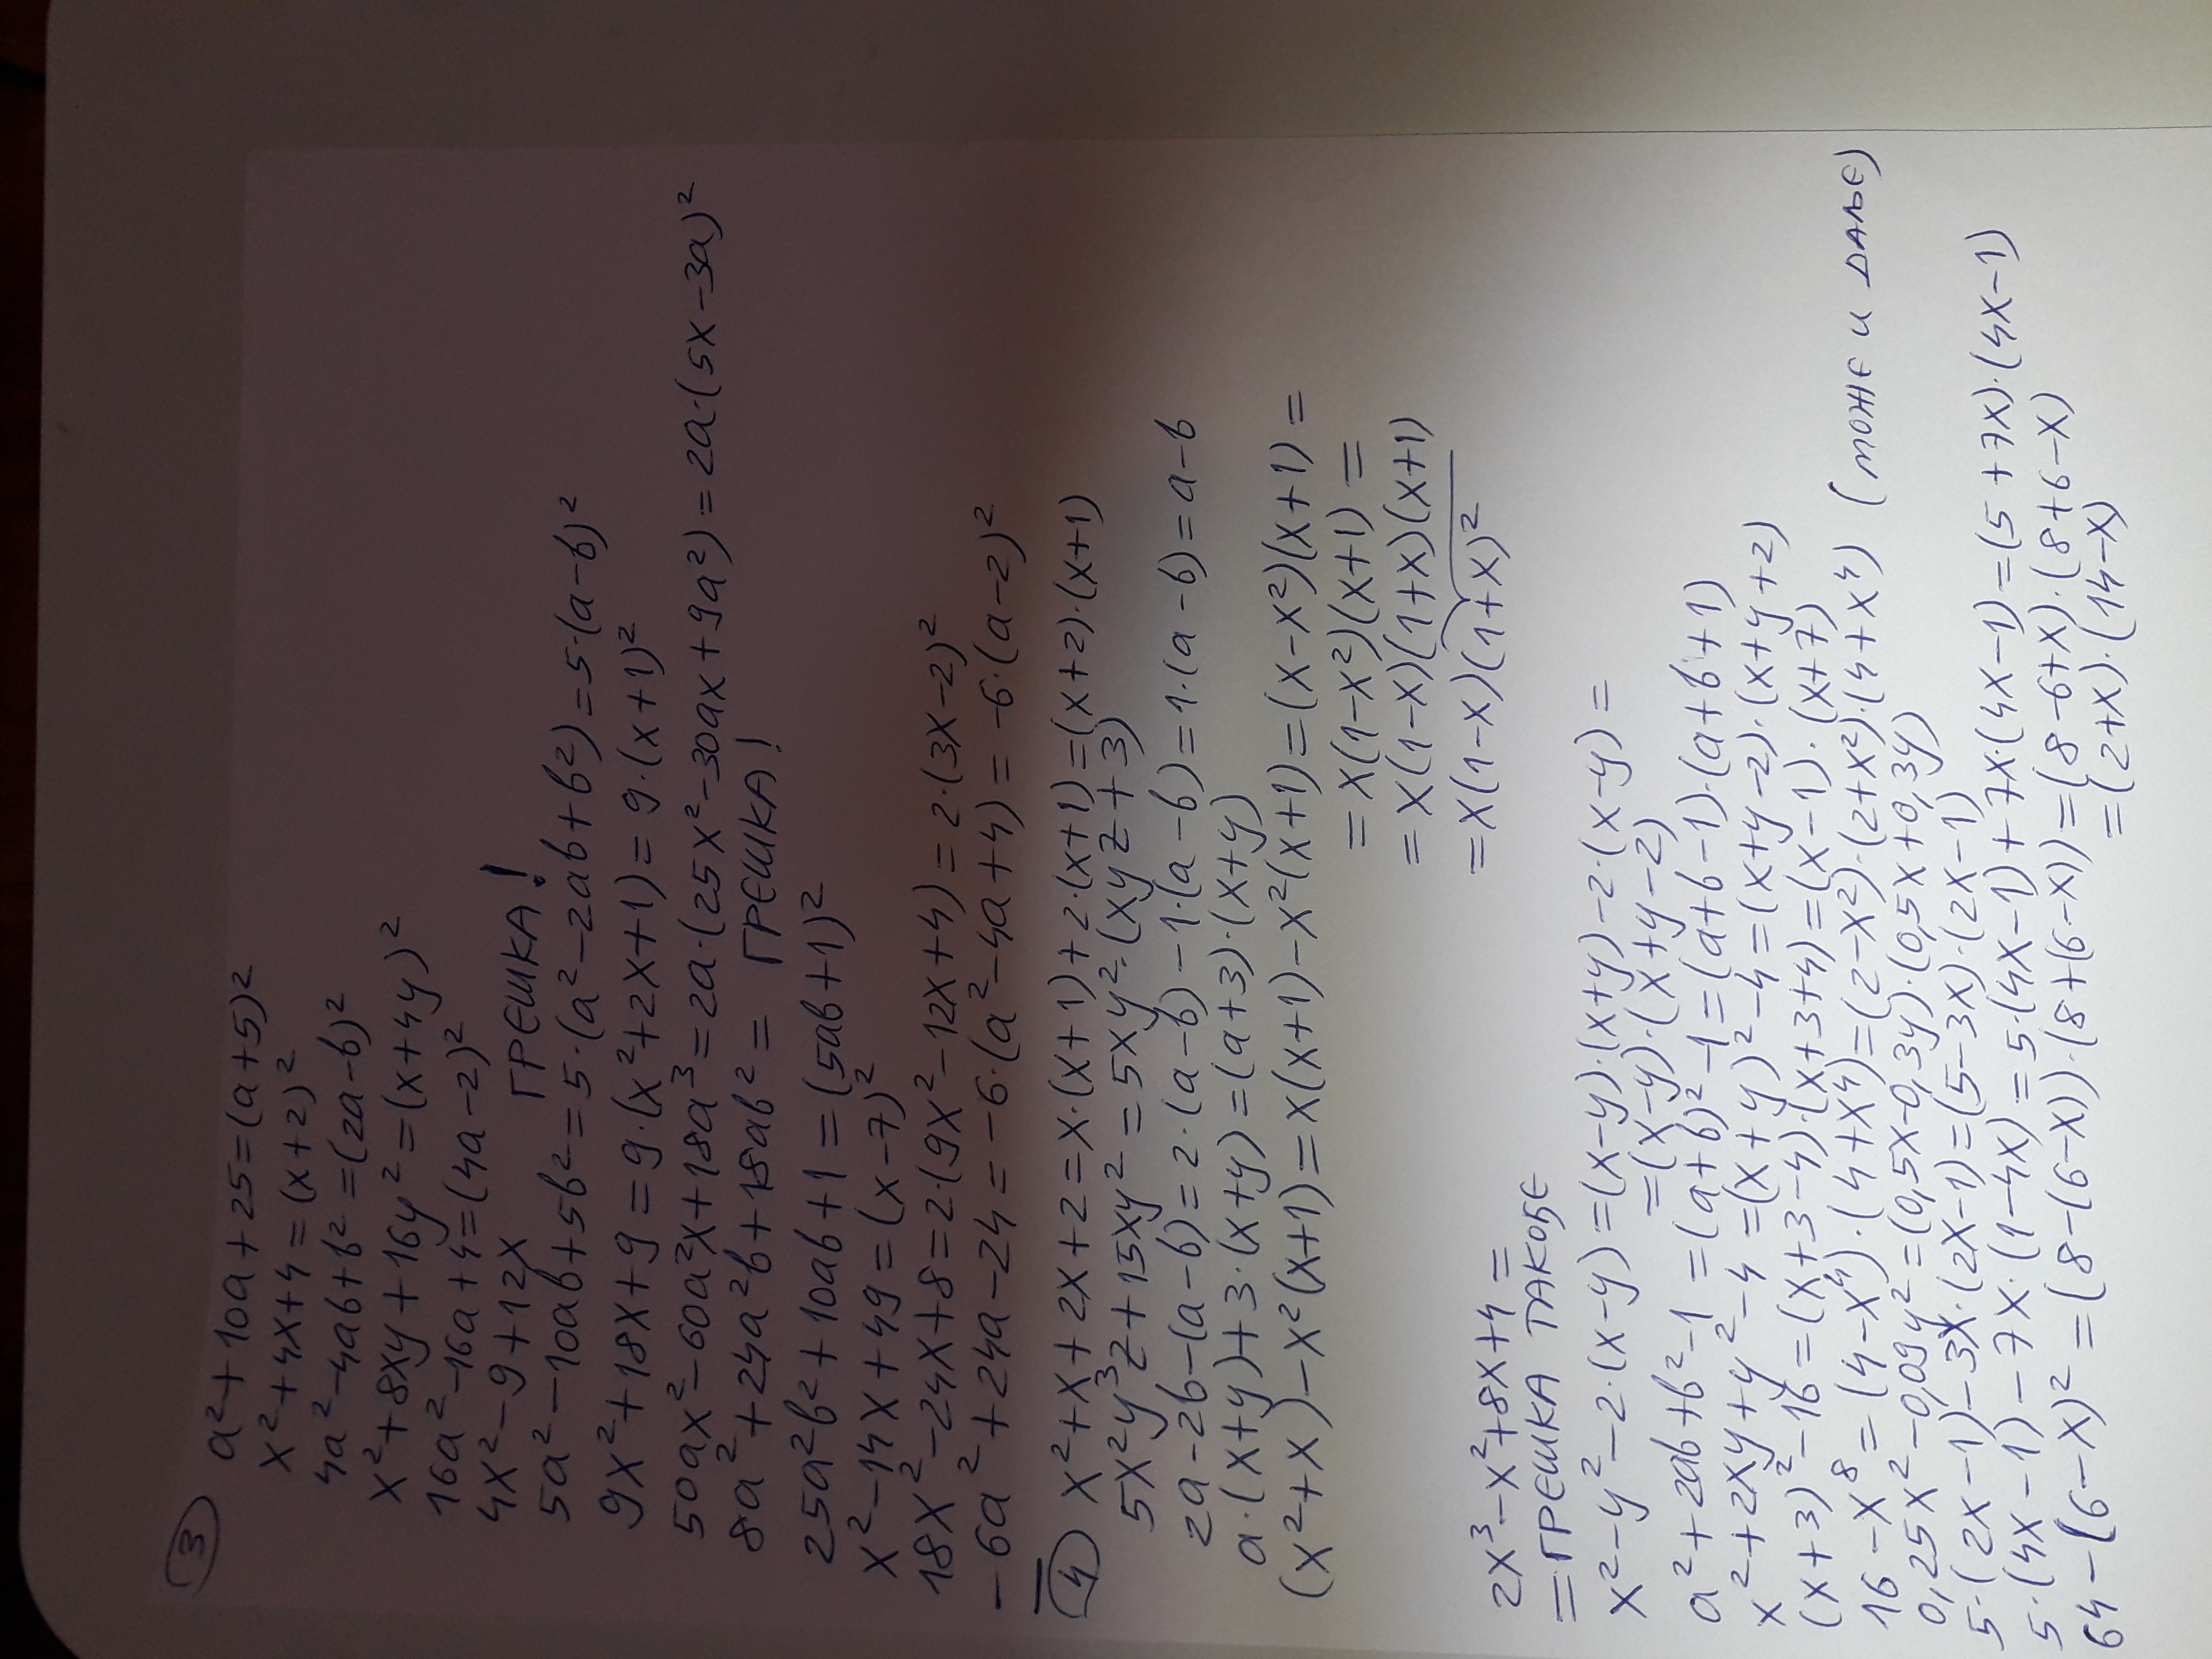 3
a²+10a+25=(a+5)²
x²+4x+4=(x+2)²
4a²-4ab+b²=(2a-b)²
x²+8xy+16y²=(x+4y)²
16a²-16a+4=(4a-2)²
4x²-9+12x ГРЕШКА!
5a²-10ab+5b²=5·(a²-2ab+b²)=5·(a-b)²
9x²+18x+9=9·(x²+2x+1)=9·(x+1)²
50ax²-60a²x+18a³=2a·(25x²-30ax+9a²)=2a·(5x-3a)²
8a²+24a²b+18ab²= ГРЕШКА!
25a²b²+10ab+1=(5ab+1)²
x²-14x+49=(x-7)²
18x²-24x+8=2·(9x²-12x+4)=2·(3x-2)²
-6a²+24a-24=-6·(a²-4a+4)=-6·(a-2)²
4 x²+x+2x+2=x·(x+1)+2·(x+1)=(x+2)·(x+1)
5x²y³z+15xy²=5xy²·(xyz+3)
2a-2b-(a-b)=2·(a-b)-1·(a-b)=1·(a-b)=a-b
a·(x+y)+3·(x+y)=(a+3)·(x+y)
(x²+x)-x²(x+1)=x(x+1)-x²(x+1)=(x-x²)(x+1)=
=x(1-x²)(x+1)=
=x(1-x)(1+x)(x+1)
=x(1-x)(1+x)²
2x³-x²+8x+4=
=ГРЕШКА ТАКОЂЕ
x²-y²-2·(x-y)=(x-y)·(x+y)-2·(x-y)=
=(x-y)·(x+y-2)
a²+2ab+b²-1=(a+b)²-1=(a+b-1)·(a+b+1)
x²+2xy+y²-4=(x+y)²-4=(x+y-2)·(x+y+2)
(x+3)²-16=(x+3-4)·(x+3+4)=(x-1)·(x+7)
16-x⁸=(4-x⁴)·(4+x⁴)=(2-x²)·(2+x²)·(4+x⁴) (може и даље)
0,25x²-0,09y²=(0,5x-0,3y)·(0,5x+0,3y)
5·(2x-1)-3x·(2x-1)=(5-3x)·(2x-1)
5·(4x-1)-7x·(1-4x)=5·(4x-1)+7x·(4x-1)=(5+7x)·(4x-1)
64-(6-x)²=(8-(6-x))·(8+(6-x))=(8-6+x)·(8+6-x)
=(2+x)·(14-x)